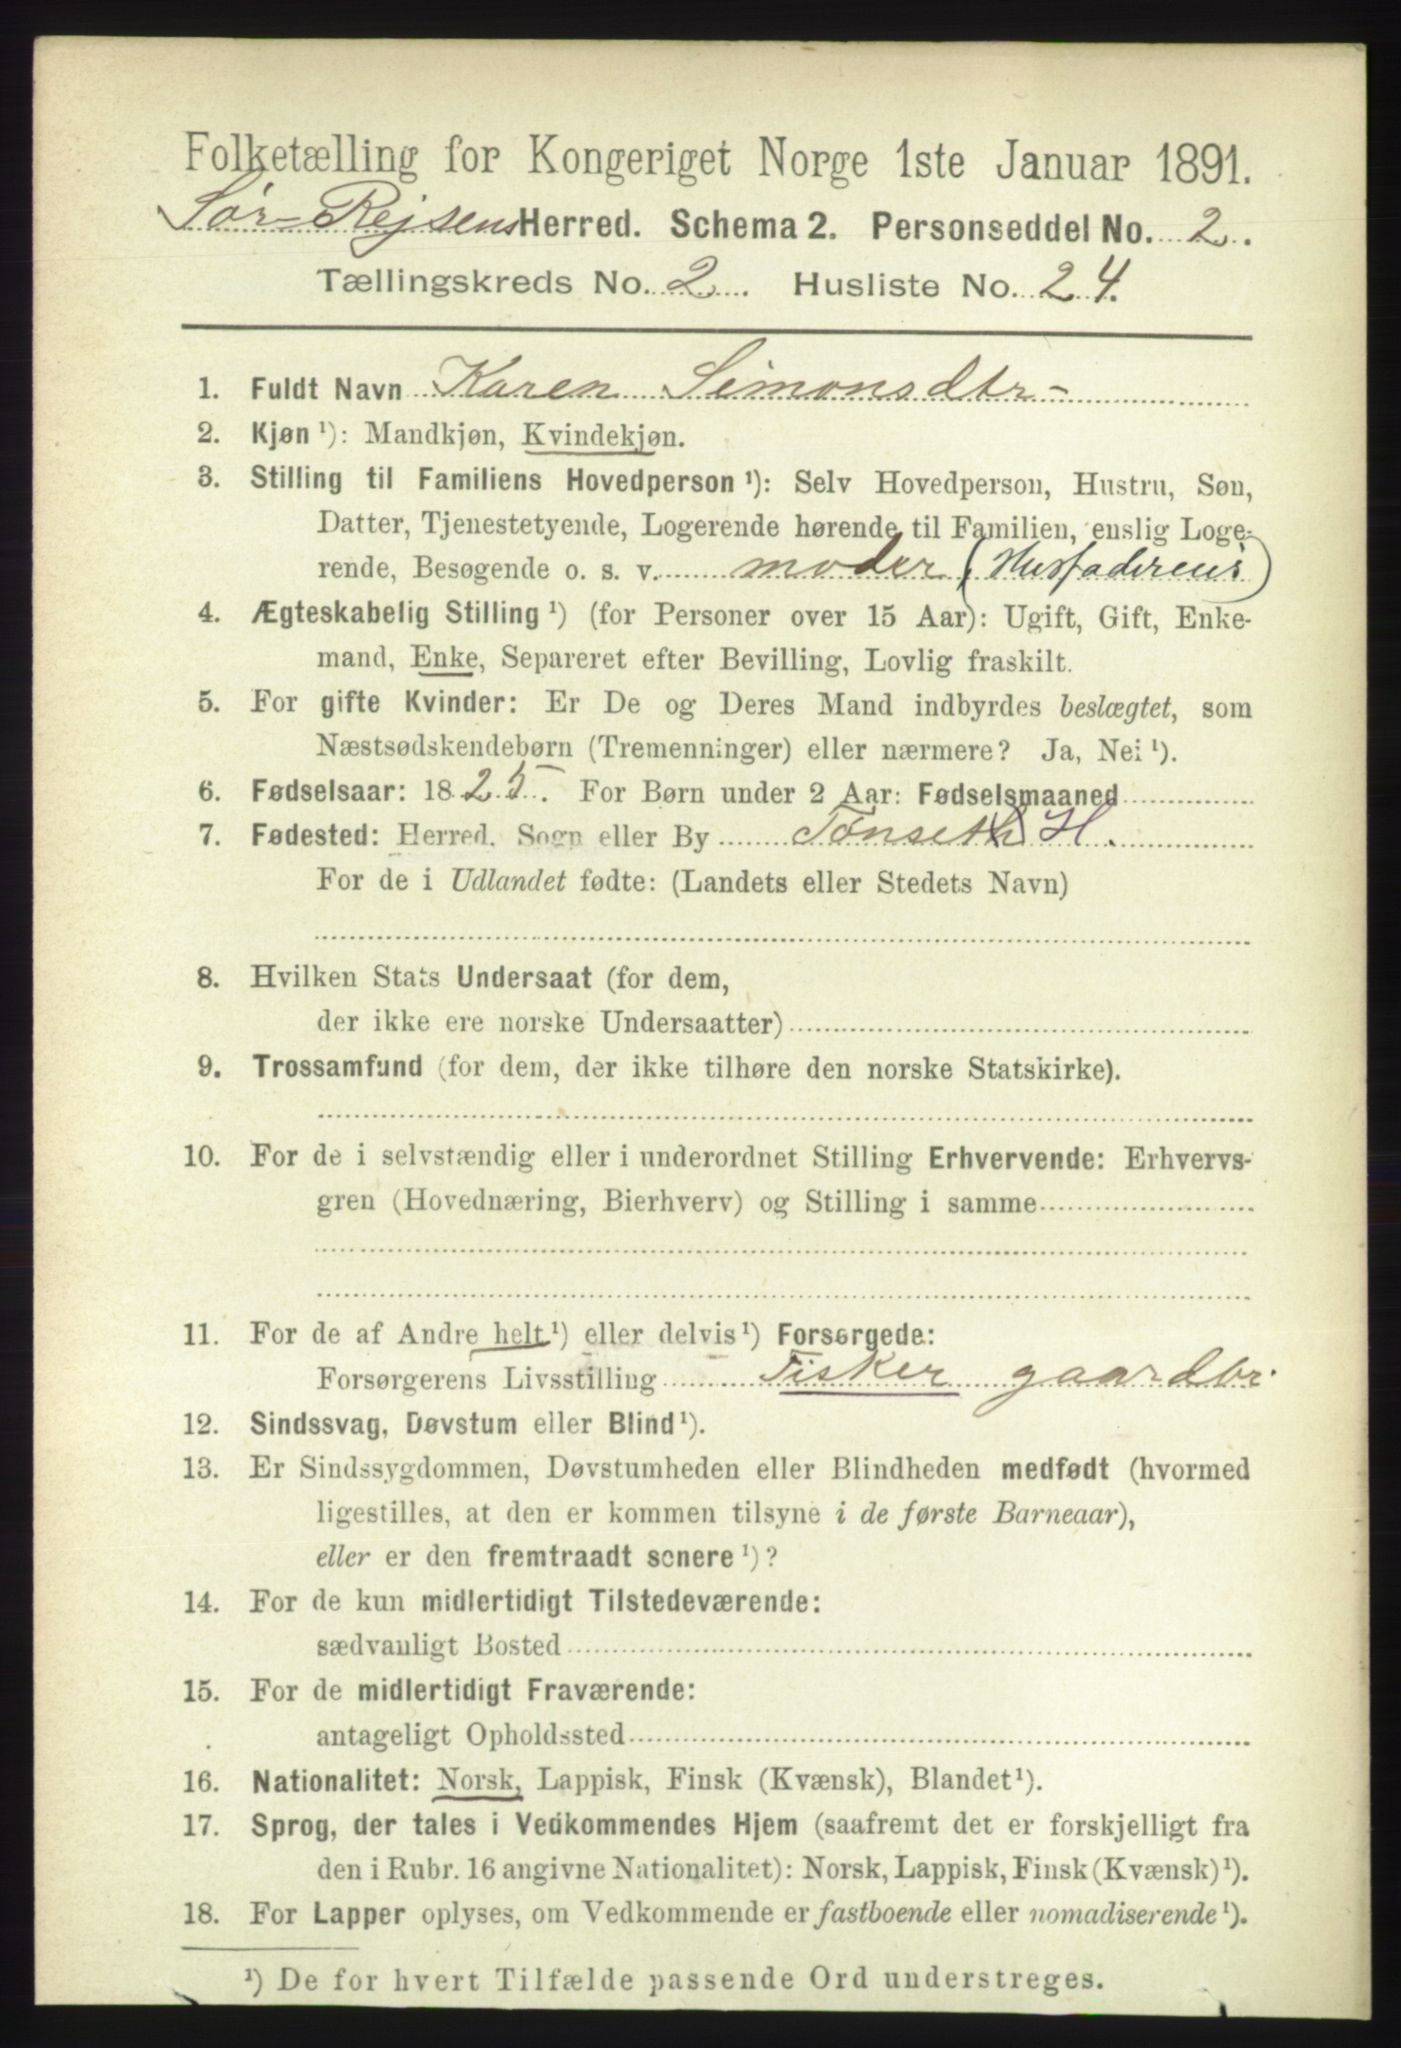 Folketælling for Kongeriget Norge 1ste Januar 1891.
Sør-Rejsens Herred. Schema 2. Personseddel No. 2.
Tællingskreds No. 2. Husliste No. 24.
1. Fuldt Navn Karen Simonsdtr
2. Kjøn ¹): Mandkjøn, Kvindekjøn.
3. Stilling til Familiens Hovedperson ¹): Selv Hovedperson, Hustru, Søn,
Datter, Tjenestetyende, Logerende hørende til Familien, enslig Loge-
rende, Besøgende o. s. v. moder (Husfaderens)
4. Ægteskabelig Stilling ¹) (for Personer over 15 Aar): Ugift, Gift, Enke-
mand, Enke, Separeret efter Bevilling, Lovlig fraskilt.
5. For gifte Kvinder: Er De og Deres Mand indbyrdes beslægtet, som
Næstsødskendebørn (Tremenninger) eller nærmere? Ja, Nei ¹).
6. Fødselsaar: 1825. For Børn under 2 Aar: Fødselsmaaned
7. Fødested: Herred, Sogn eller By Tønseth H.
For de i Udlandet fødte: (Landets eller Stedets Navn)
8. Hvilken Stats Undersaat (for dem,
der ikke ere norske Undersaatter)
9. Trossamfund (for dem, der ikke tilhøre den norske Statskirke).
10. For de i selvstændig eller i underordnet Stilling Erhvervende: Erhvervs-
gren (Hovednæring, Bierhverv) og Stilling i samme
11. For de af Andre helt ¹) eller delvis ¹) Forsørgede:
Forsørgerens Livsstilling Fisker gaardbr.
12. Sindssvag, Døvstum eller Blind ¹).
13. Er Sindssygdommen, Døvstumheden eller Blindheden medfødt (hvormed
ligestilles, at den er kommen tilsyne i de første Barneaar),
eller er den fremtraadt senere ¹)?
14. For de kun midlertidigt Tilstedeværende:
sædvanligt Bosted
15. For de midlertidigt Fraværende:
antageligt Opholdssted
16. Nationalitet: Norsk, Lappisk, Finsk (Kvænsk), Blandet ¹).
17. Sprog, der tales i Vedkommendes Hjem (saafremt det er forskjelligt fra
den i Rubr. 16 angivne Nationalitet): Norsk, Lappisk, Finsk (Kvænsk) ¹).
18. For Lapper oplyses, om Vedkommende er fastboende eller nomadiserende ¹).
¹) De for hvert Tilfælde passende Ord understreges.